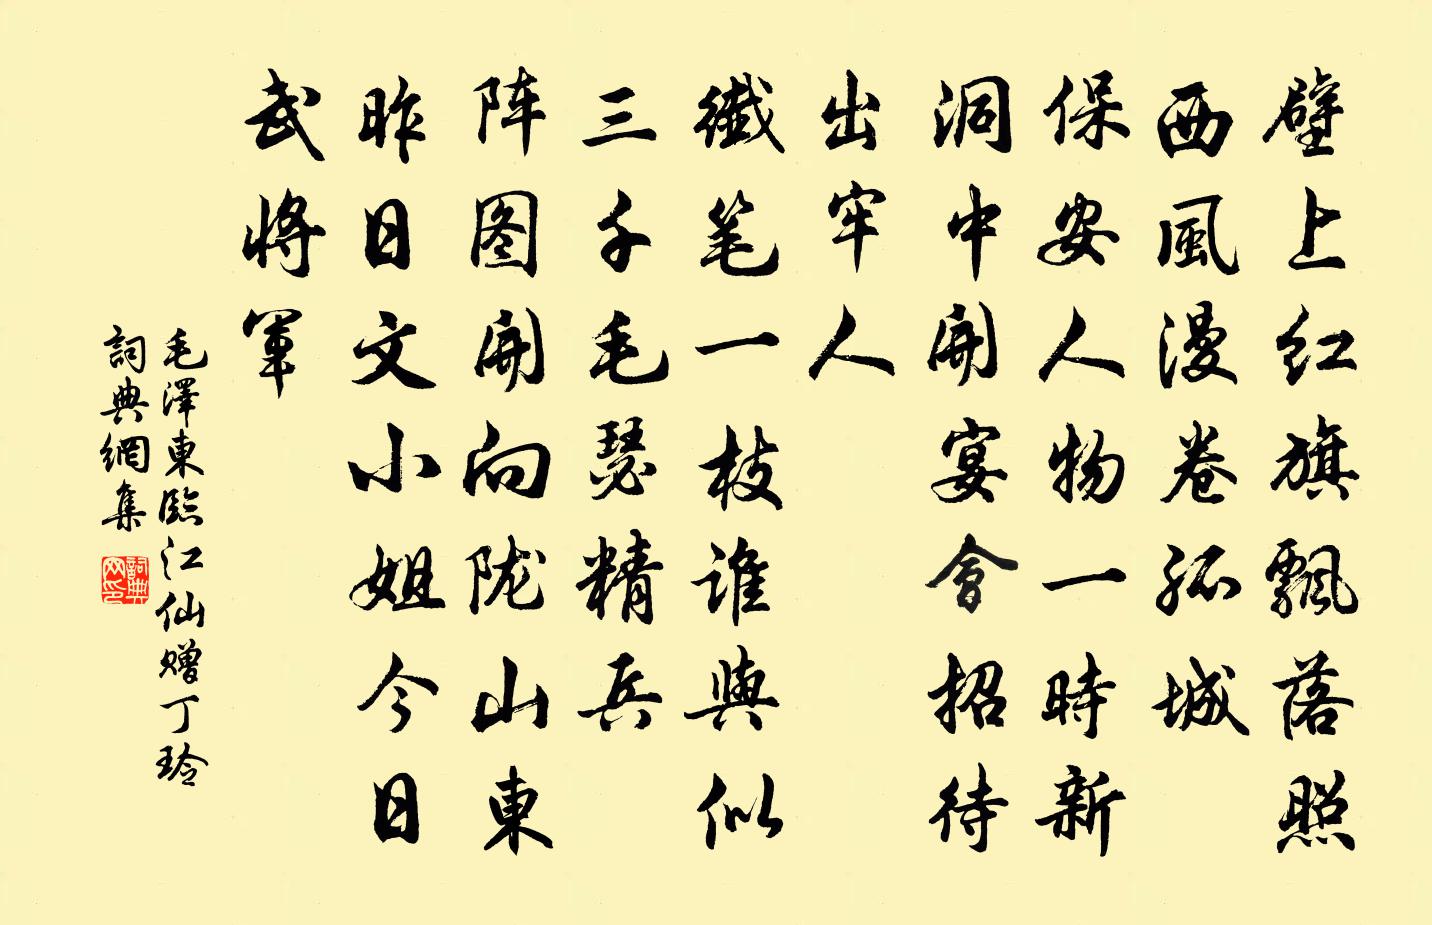 壁上红旗飄落照
西風漫卷孤城
保安人物一時新
洞中開宴會招待
出牢人
纖笔一枝谁與似
三千毛瑟精兵
阵图開向陇山東
昨日文小姐今日
武將軍
毛澤東臨江仙赠丁玲
詞典網集
詞典
网印